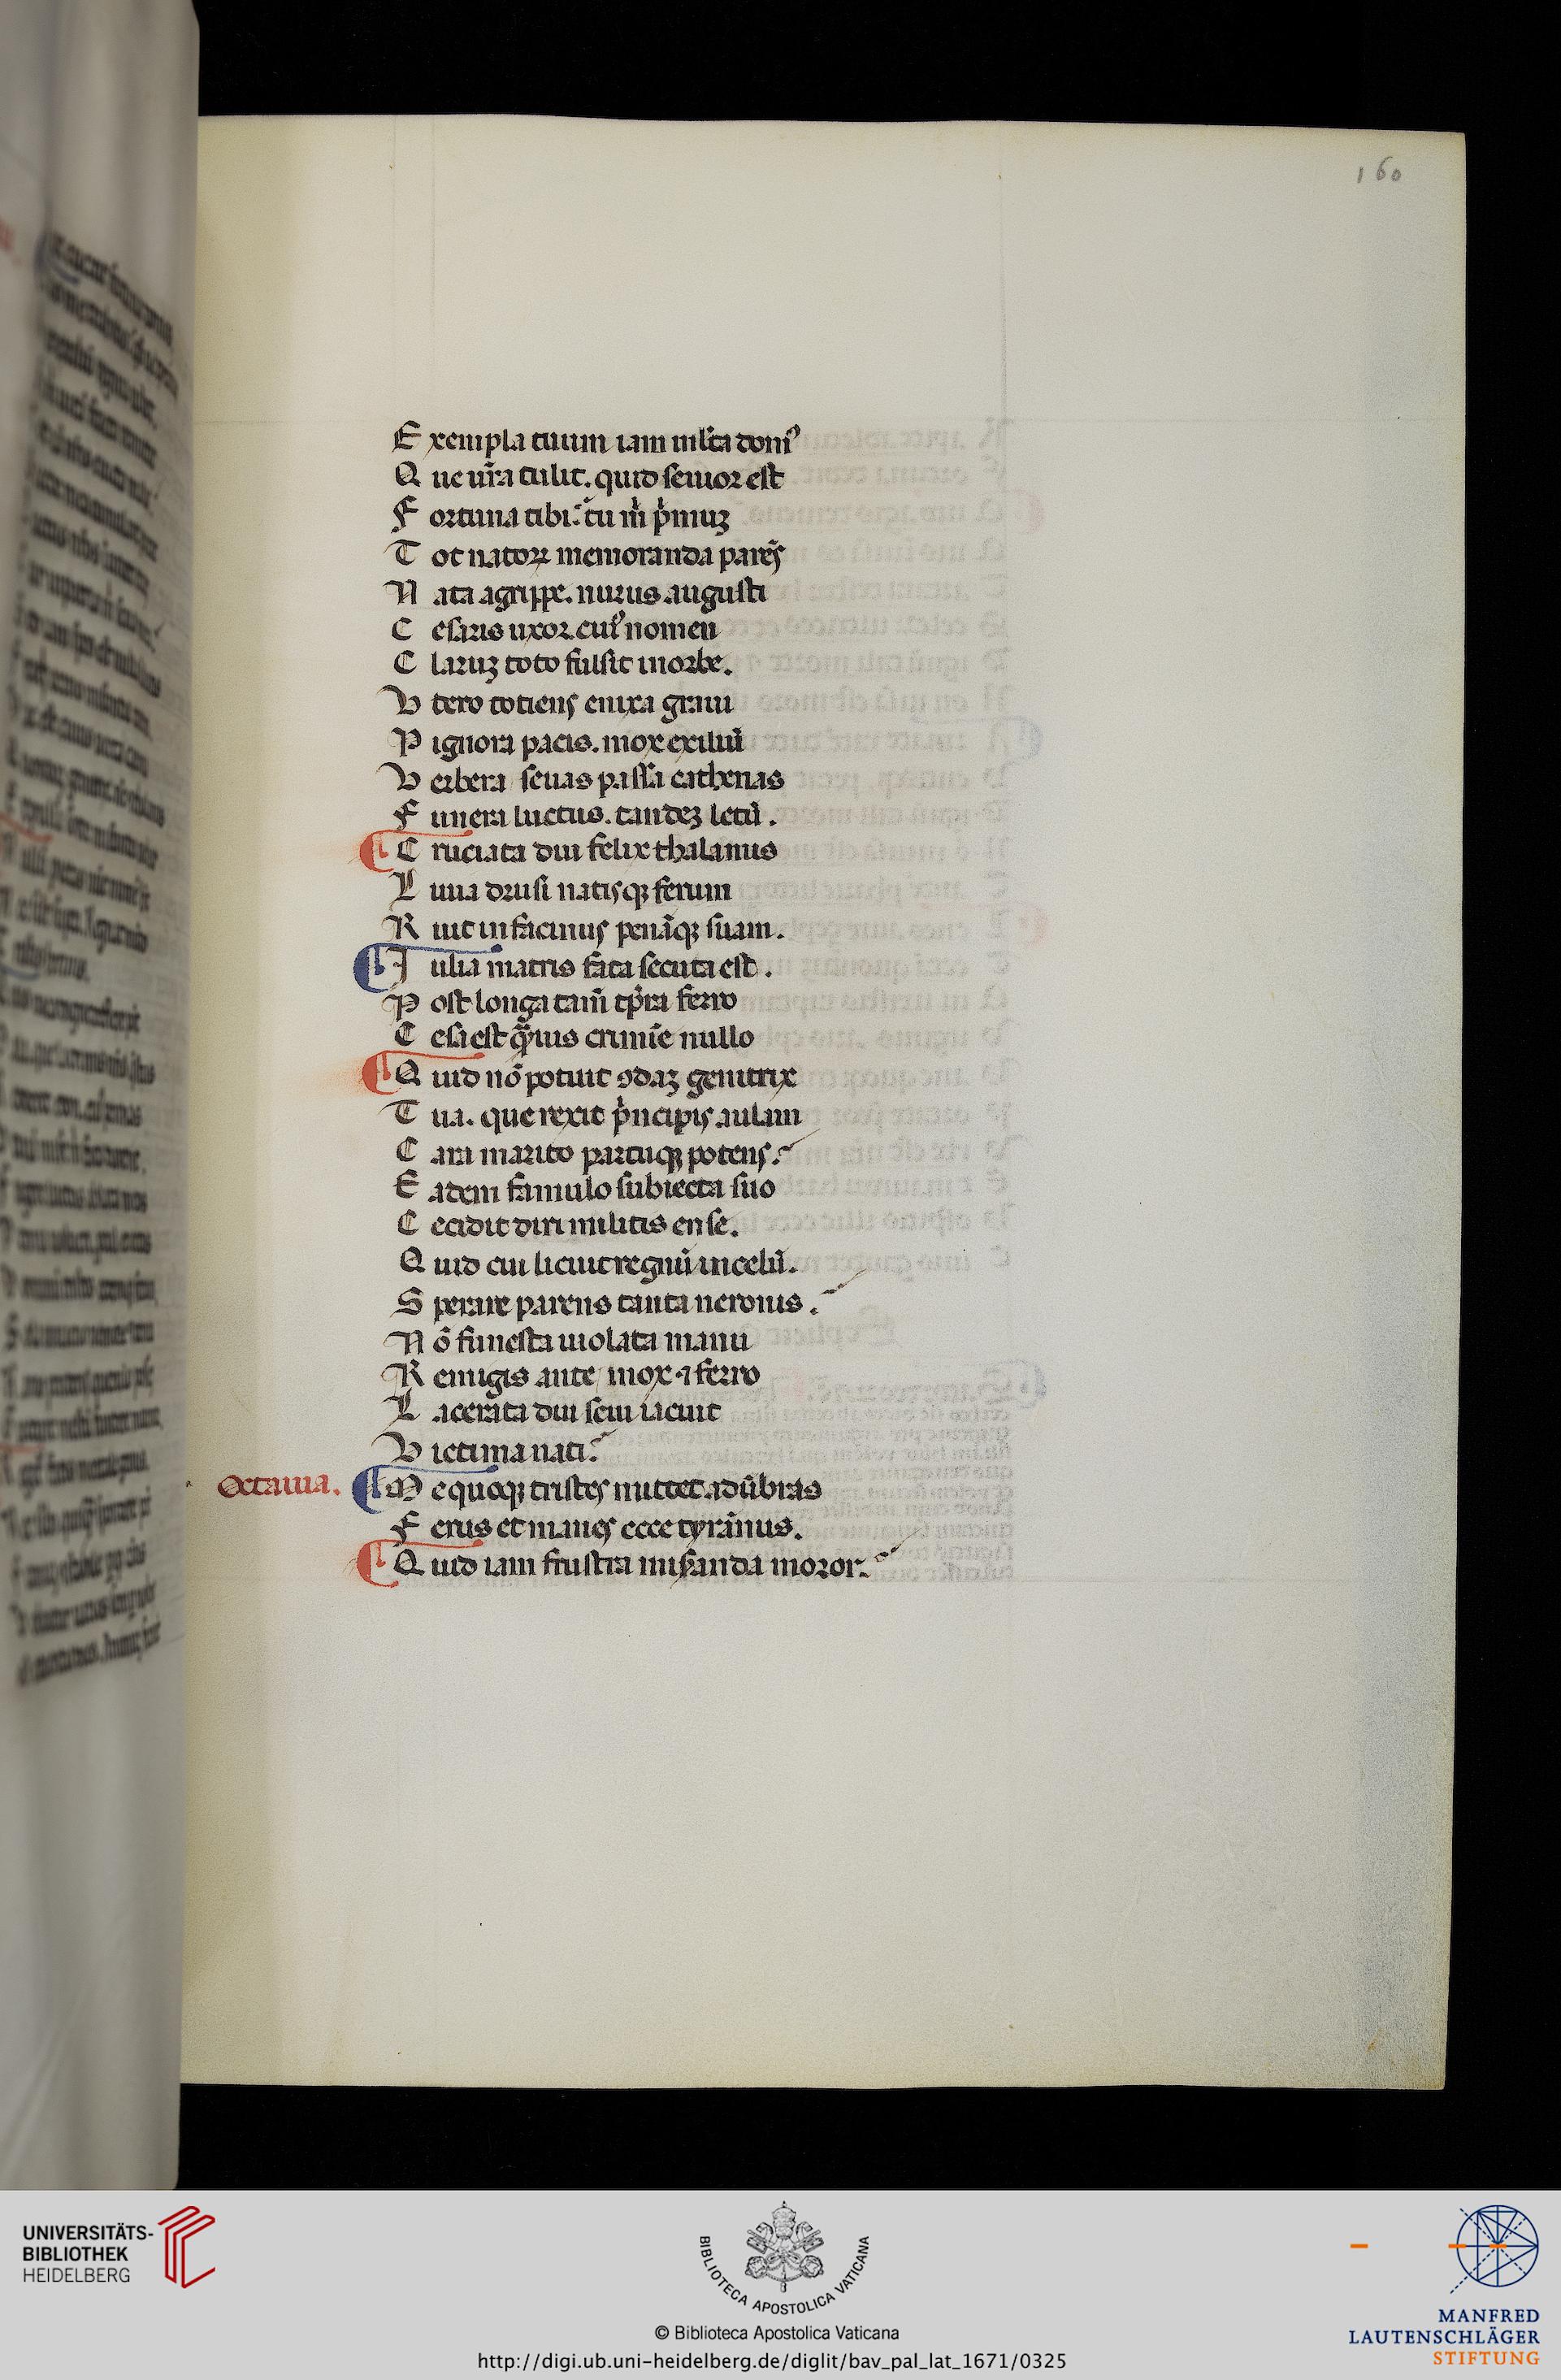 160
E xempla tuum iam ml̄ta domꝰ
Q ue ur̄a tulit. quid seuior est
F ortuna tibi. tu m̄ p̄muꝫ
T ot natoꝝ memoranda parēs
N ata agrippe. nurus augusti
C esaris uxor. cuiꝰ nomen
C laruꝫ toto fulsit in orbe.
V tero totiens enixa graui
P ignora pacis. mox exiliū
V erbera seuas passa cathenas
F unera luctus. tandeꝫ letū.
C ruciata diu felix thalamis
L iuia drusi natisqꝫ ferum
R uit in facinus penāqꝫ suam.
J ulia matris fata secuta est.
P ost longa tam̄ tp̄ra ferro
C esa est q̄muis crimīe nullo
Q uid nō potuit ꝯdaꝫ genitrix
T ua. que rexit p̄ncipis aulam
C ara marito partuqꝫ potens.
E adem famulo subiecta suo
C ecidit diri militis ense.
Q uid cui licuit regnū in celū.
S perare parens tanta neronis.
N ō funesta uiolata manu
R emigis ante mox ⁊ ferro
L acerata diu seui iacuit
V ictima nati.
Octauia. M e quoqꝫ tristes mittet ad ūbras
F erus et manes ecce tyrānus.
Q uid iam frustra mis̄anda moror.
UNIVERSITÄTS-
BIBLIOTHEK
HEIDELBERG
BIBLIOTECA APOSTOLICA VATICANA
© Biblioteca Apostolica Vaticana
http://digi.ub.uni-heidelberg.de/diglit/bav_pal_lat_1671/0325
MANFRED
LAUTENSCHLÄGER
STIFTUNG